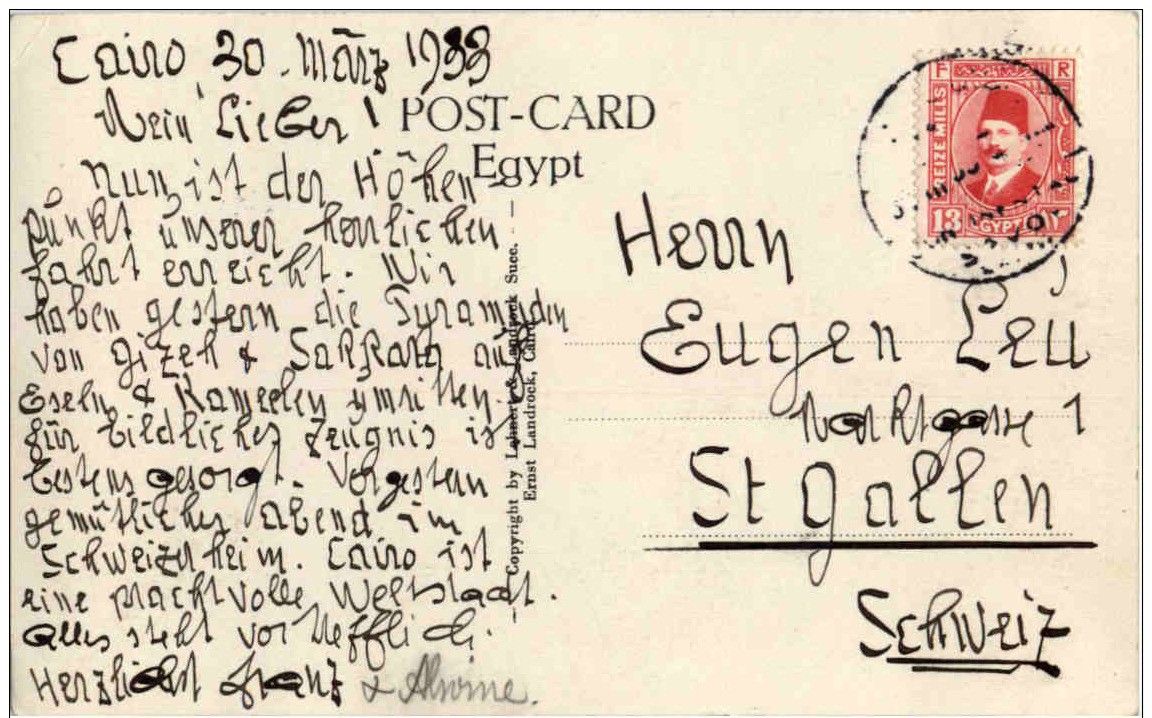 Cairo, 30. März 1933
Mein Lieber!
Nun ist der Höhen-
punkt unserer herrlichen
Fahrt erreicht. Wir
haben gestern die Pyramiden
von Gizeh & Sakkara auf
Eseln & Kameelen umritten.
für bildliches Zeugnis ist
bestens gesorgt. Vorgestern
gemütlicher Abend im
Schweizerheim. Cairo ist
eine prachtvolle Weltstadt.
Alles steht vortrefflich.
Herzlichst Franz & Alwine.
POST-CARD
Egypt
Copyright by Lehnert & Landrock Succ.
Ernst Landrock, Cairo
F R
TREIZE MILLS
13
EGYPTE
Herrn
Eugen Leu
Marktgasse 1
St Gallen
Schweiz